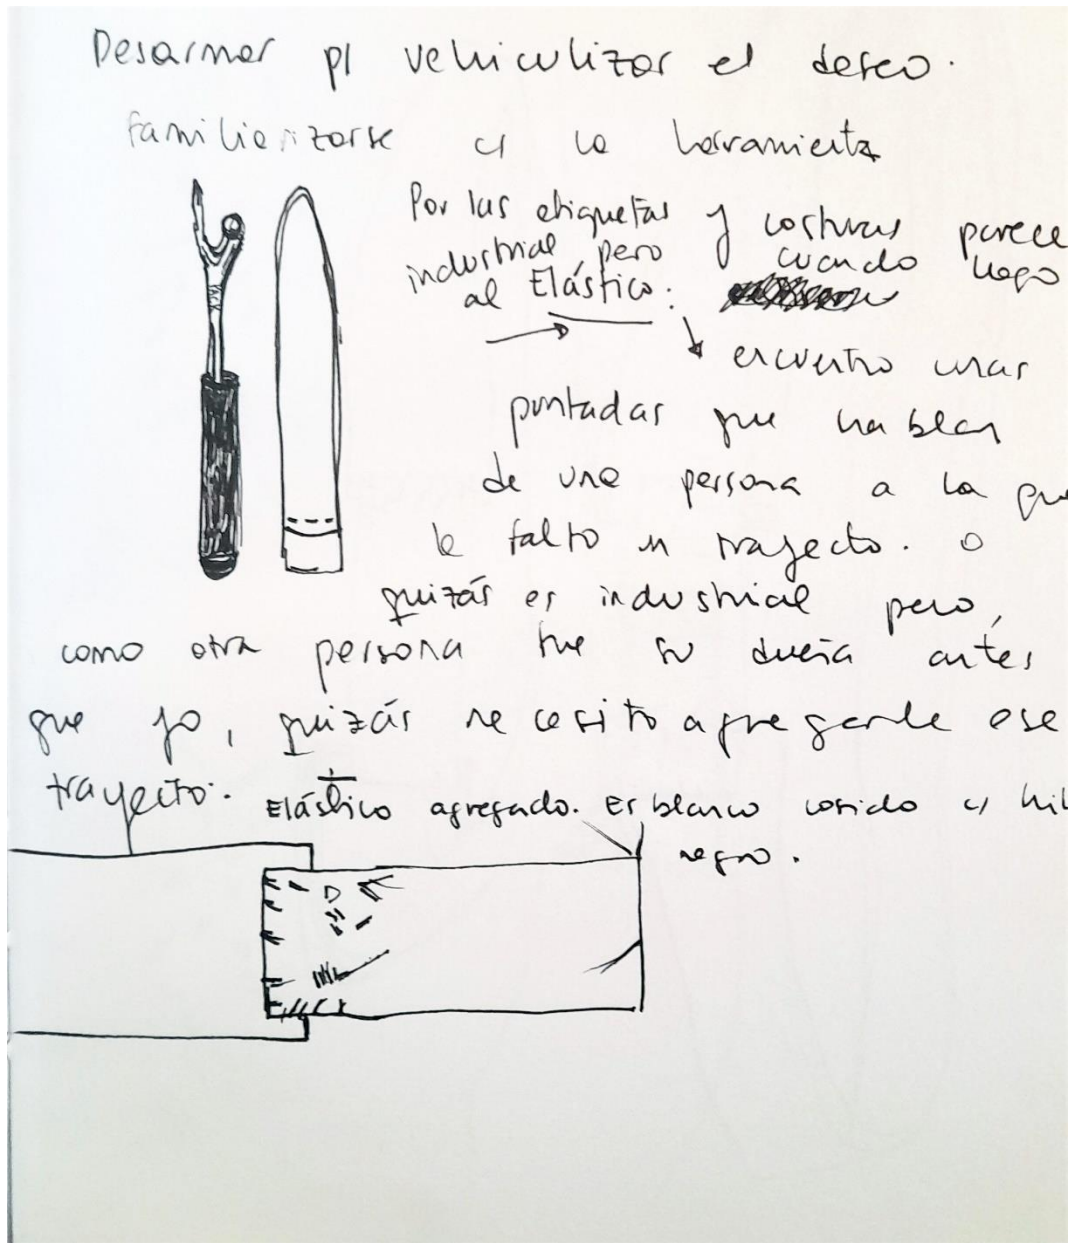 Desarmar p/ vehiculizar el deseo.
familiarizarse c/ la herramienta
Por las etiquetas y costuras parece
industrial, pero cuando llego
al Elástico:
encuentro unas
puntadas que hablan
de una persona a la que
le falto un trayecto. o
quizás es industrial pero,
como otra persona fue su dueña antes
que yo, quizás necesito agregarle ese
trayecto.
Elástico agregado. Es blanco cosido c/ hil
negro.